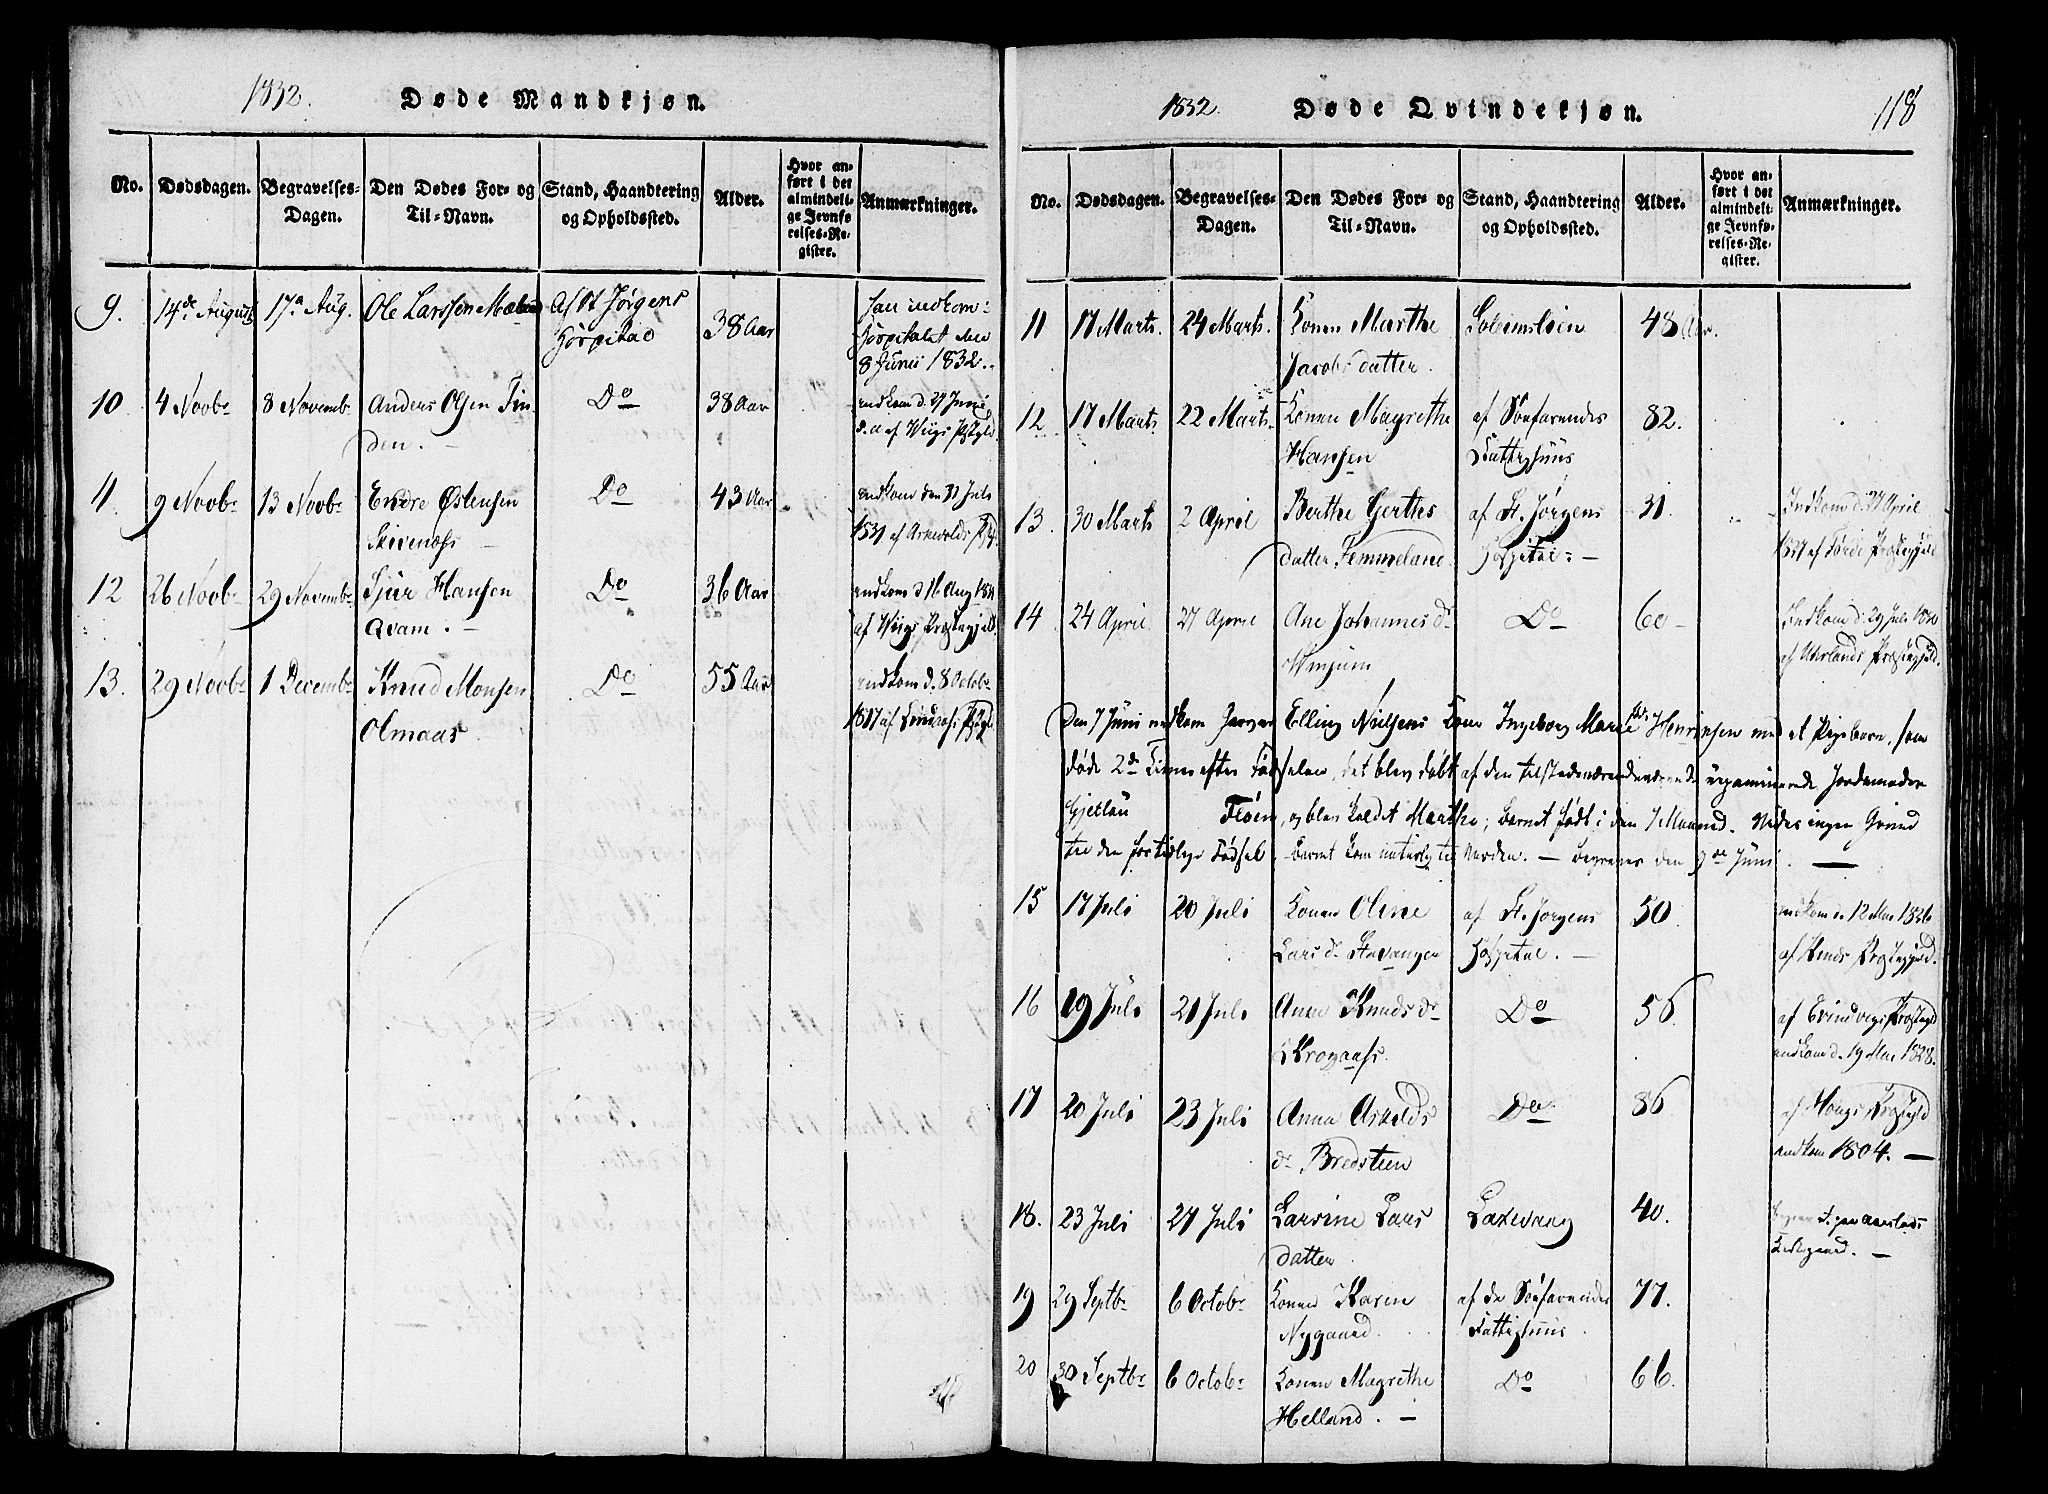 1832. Døde Mandkjøn.
No. Dødsdagen. Begravelses-Dagen. Den Dødes For- og Til-Navn. Stand, Haandtering og Opholdssted. Alder. Hvor anført i det almindelige Jevnførelses-Register. Anmærkninger.
9. 14de August 17a Aug. Ole Larssen Af St Jørgens 38 Aar
Hospital
Hospitalet den
8 Junii 1832.
10 4 Novbr 8 Novemb. Anders Olsen Tin- Do 38 Aar indkom d. 27 Junii
den. — d.a. af Wiigs
11. 9 Novbr 13 Novbr Endre Østensen Do 43 Aar indkom den 31 Juli
Skivenæss — af
12 26 Novbr 29 Novembr Sjur Hansen Do 36 Aar indkom d 16 Aug 1831
Qvam. — af Wiigs Præstegjeld
13. 29 Novbr 1 Decembr Knud Monsen Do 55 Aar indkom d. 8 Octobr
Olmaas 1817 af
1832. Døde Qvindekjøn. 118
No. Dødsdagen. Begravelses-Dagen. Den Dødes For- og Til-Navn. Stand, Haandtering og Opholdssted. Alder. Hvor anført i det almindelige Jevnførelses-Register. Anmærkninger.
11 17 Marts. 24 Marts. Konen Marthe 48 Aar.
Jacobsdatter.
12. 17 Marts 22 Marts. Konen Magrethe af Søefarendes 82.
Hansen Fattighuus
13. 30 Marts 2 April Berthe Gerthes af St. Jørgens 31. Indkom d. 27 April
datter Femmeland. Hospital — af Førde Præstegjeld
14 24 April 27 April Ane Johannes dr Do 60 — Indkom d. 29 Juli
Winjum af Urlands Præstegjeld.
Den 7 Juni nedkom Elling Nielsens Kone Ingeborg Marie Henrixsen med et Pigebarn, som
døde 2de Timer efter Fødselen, det blev døbt af den tilstedeværende examinerede Jordemoder
Fløen, og blev kaldet Marthe; Barnet født i den 7 Maaned. Vides ingen Grund
til den for tidlige Fødsel. Barnet kom naturlig til Verden. — begraves den 9de Juni. —
15 17 Juli 20 Juli Konen Oline af St. Jørgens 50. indkom d. 12 Mai 1826
Lars dr Stavanger Hospital. — af Præstegjeld.
16 19 Juli 21 Juli Anna Knuds dr Do 56. af Evindvigs Præstegjeld
Krogaass. indkom d. 19 Mai 1828.
17 20 Juli 23 Juli Anna Do 86 af Præstegjeld
dr Bredsteen indkom 1804. —
18. 23 Juli 27 Juli Larsine Lars Laxevaag 40.
datter Kirkegaard. —
19 29 Septbr 6 Octobr Konen Karen af de Søefarendes 77.
Nygaard. Fattighuus.
20 30 Septbr 6 Octobr Konen Magrethe Do 66.
Helland. —